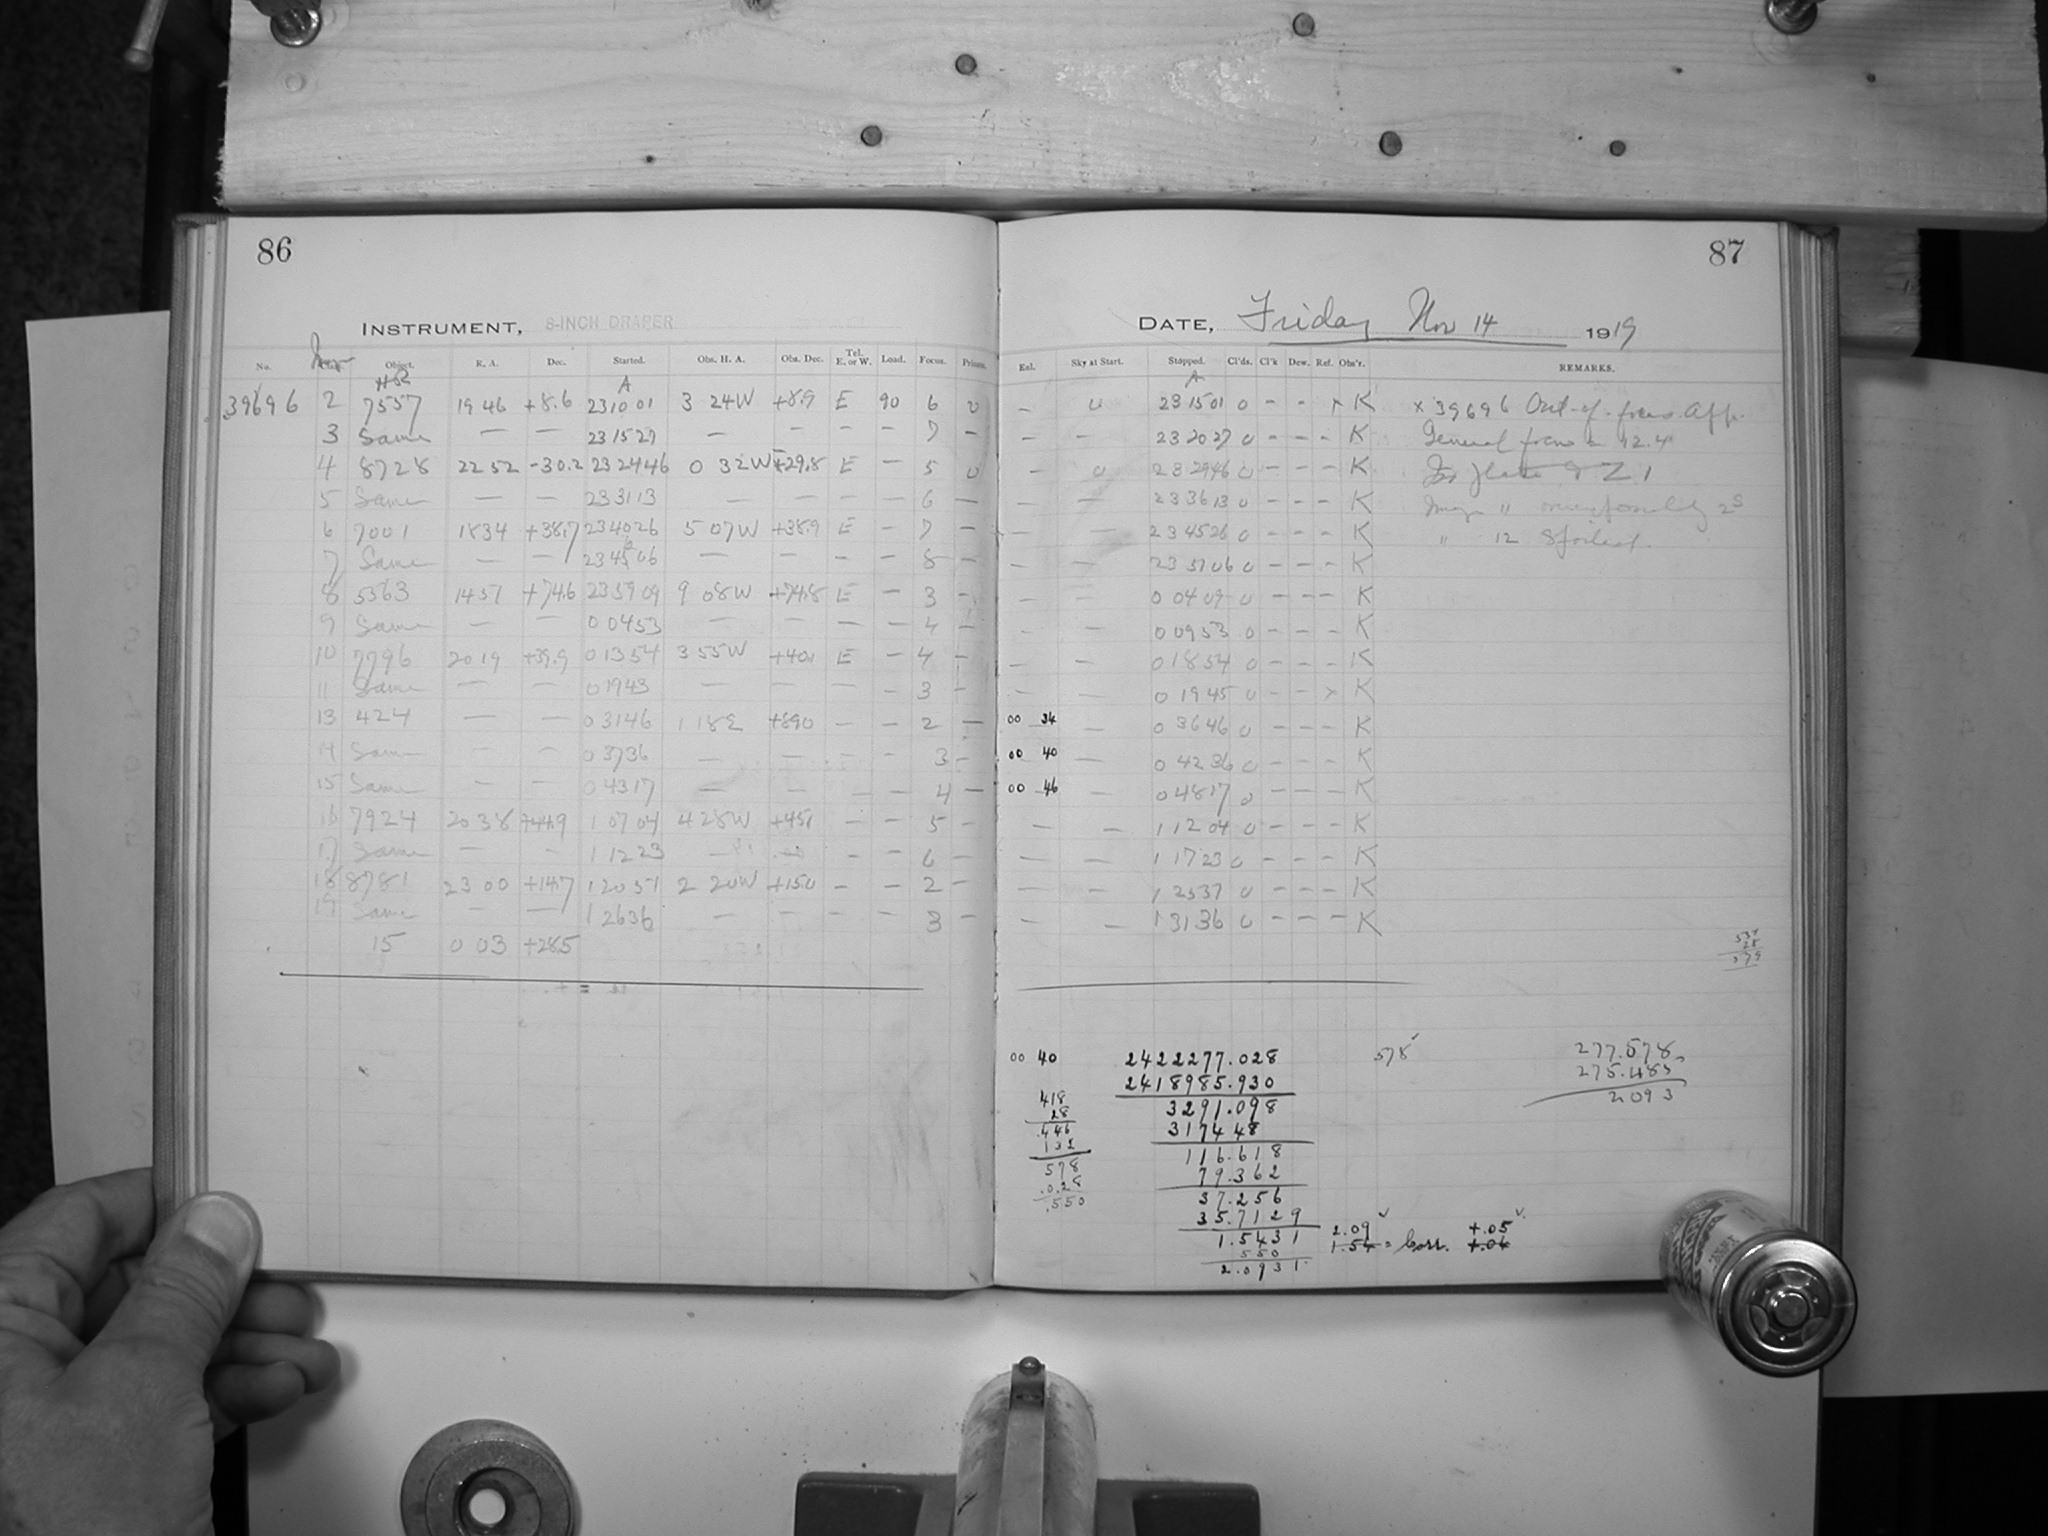 86
INSTRUMENT, 8-INCH DRAPER
No. Object. R. A. Dec. Started. Obs. H. A. Obs. Dec. Tel. E. or W. Load. Focus.
HR A
39696 2 7557 19 46 +8.6 23 10 01 3 24W +8.9 E 90 6 0
3 Same — — 23 15 27 — — — — 7 —
4 8728 22 52 -30.2 23 24 46 0 32W -29.8 E — 5 0
5 Same — — 23 31 13 — — — — 6 —
6 7001 18 34 +38.7 23 40 26 5 07W +38.9 E — 7 —
7 Same — — — — — — 8 —
8 5563 14 51 +74.6 23 59 09 9 08W +74.8 E — 3 —
9 Same — — 0 04 53 — — — — 4 —
10 7796 20 19 +39.9 0 13 54 3 55W +40.1 E — 4 —
11 Same — — 0 19 43 — — — — 3 —
13 424 — — 0 31 46 1 18E +89.0 — — 2 —
14 Same — — 0 37 36 — — — — 3 —
15 Same — — 0 43 17 — — — — 4 —
16 7924 20 38 +44.9 1 07 04 4 28W +45.1 — — 5 —
17 Same — — 1 12 23 — — — — 6 —
18 8781 23 00 +14.7 1 20 37 2 20W +15.0 — — 2 —
19 Same — — 1 26 36 — — — — 3 —
15 0 03 +28.5
87
DATE, Friday Nov 14 1919
Sky at Start. Stopped. Cl'ds. Cl'k Dew. Ref. Obs'r. REMARKS.
A
— 0 23 15 01 0 — — x K x 39696 Out of focus App.
— — 23 20 27 0 — — — K General focus = 12.4
— 0 23 29 46 0 — — — K
— — 23 36 13 0 — — — K
— — 23 45 26 0 — — — K " 12 Spoiled.
— — 23 51 06 0 — — — K
— — 0 04 09 0 — — — K
— — 0 09 53 0 — — — K
— — 0 18 54 0 — — — K
— — 0 19 45 0 — — x K
00 34 — 0 36 46 0 — — — K
00 40 — 0 42 36 0 — — — K
00 46 — 0 48 17 0 — — — K
— — 1 12 04 0 — — — K
— — 1 17 23 0 — — — K
— — 1 25 37 0 — — — K
— — 1 31 36 0 — — — K
00 40 2422277.028 578 277.578
2418985.930 275.485
418 3291.098 2093
28 3174 48
.446 116.618
132 79.362
578 37.256
.028 35.7129
.550 1.5431 2.09 +.05
550 1.54 = Corr. +.04
2.0931